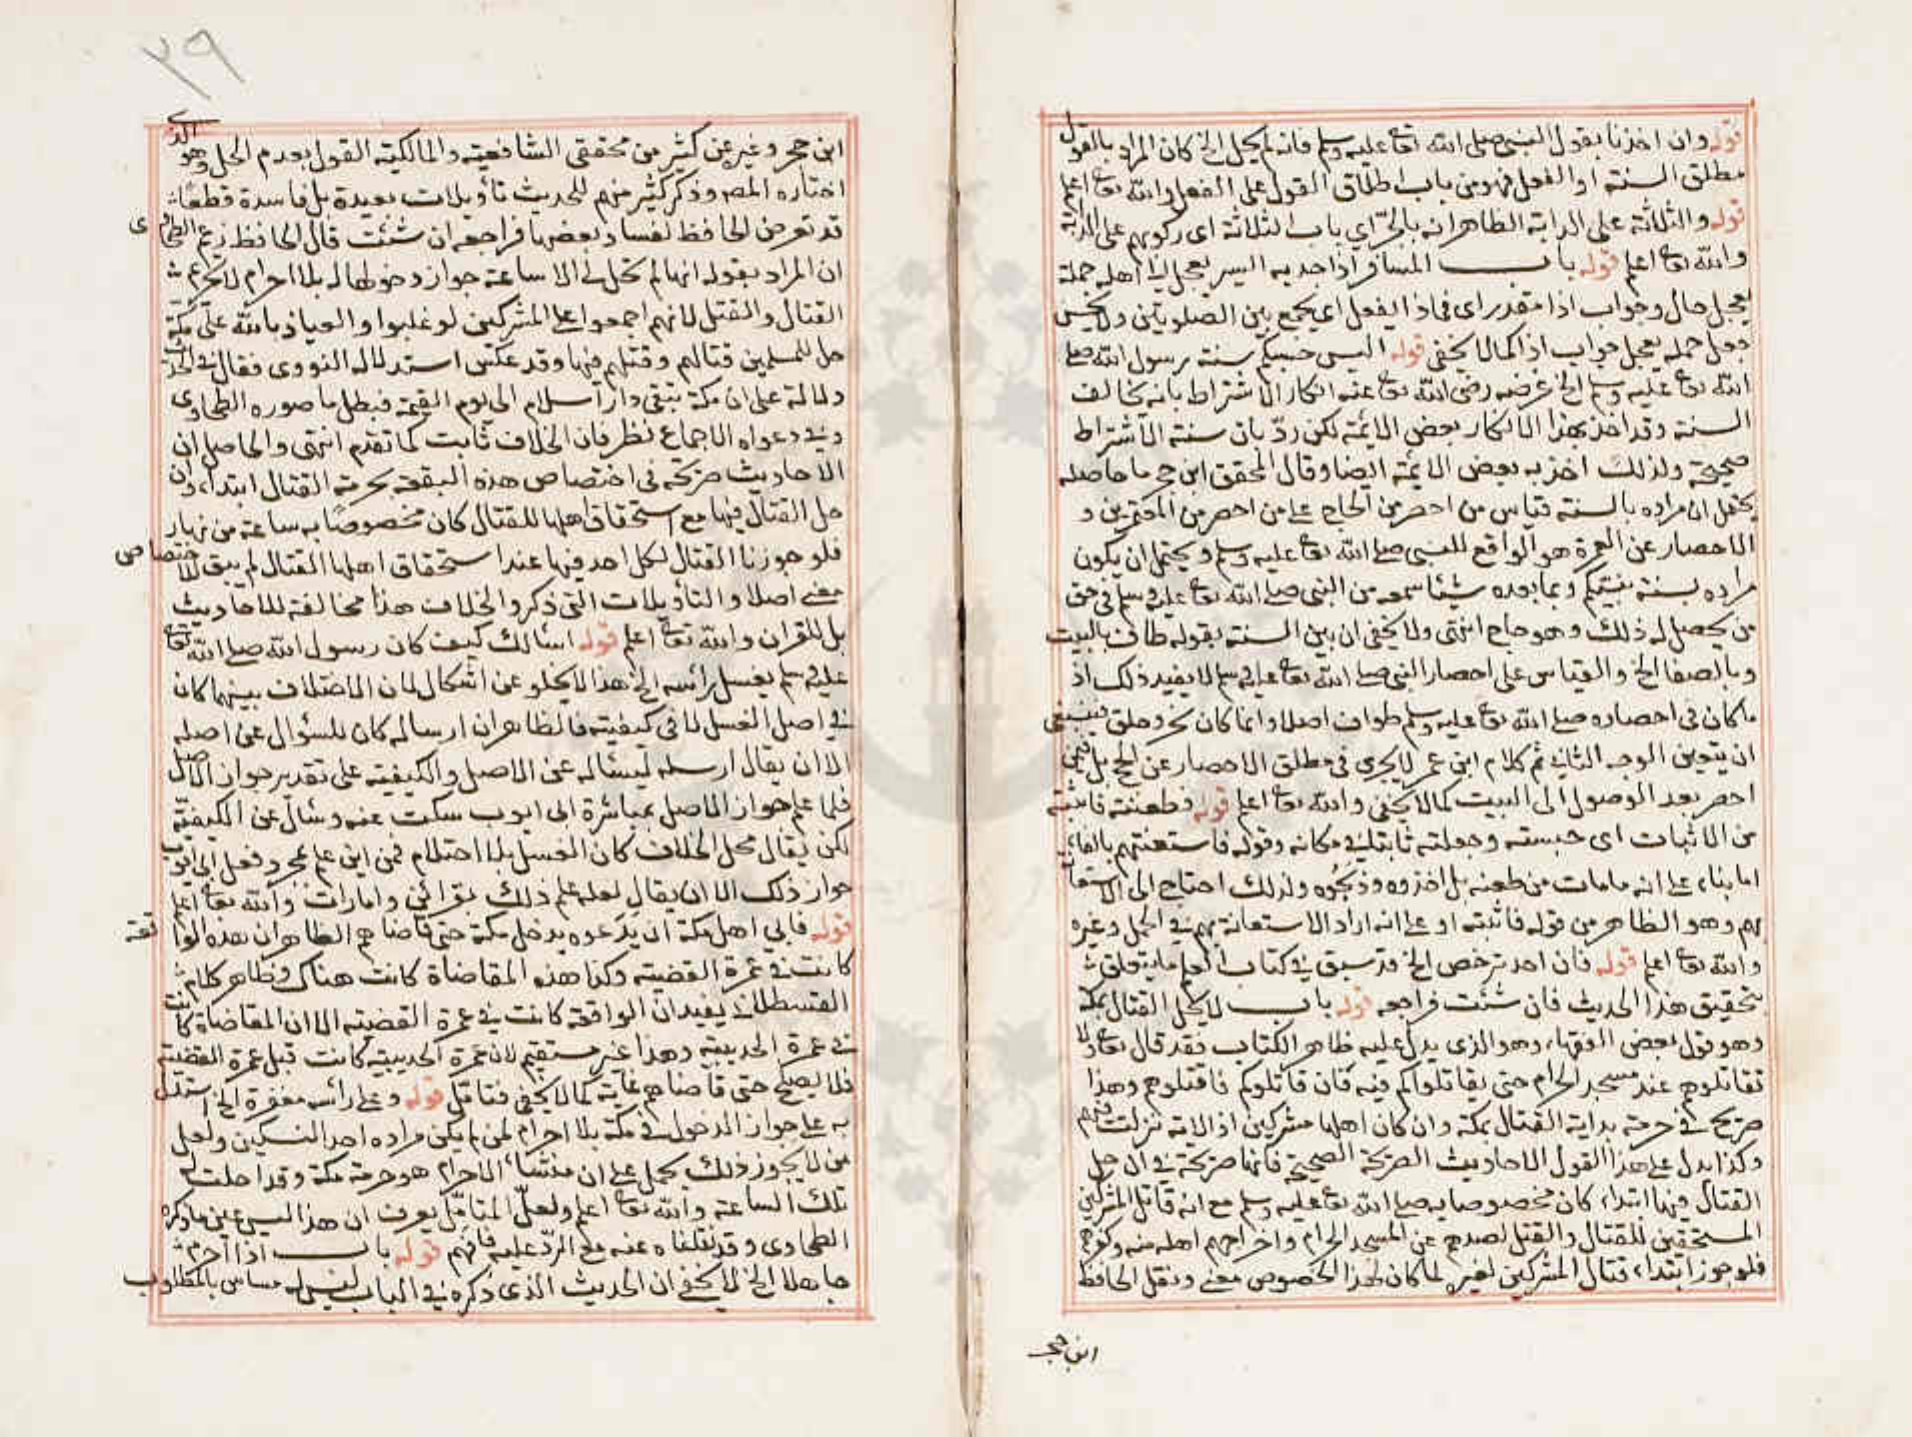 قوله وان اخذنا بقول النبي صلى الله تعا عليه وسلم فانه لم يحل الخ كان المراد بالقول
مطلق السنة او الفعل فهو من باب اطلاق القول على الفعل والله تعا اعلم
قوله والثلاثة على الدابة الظاهر انه بالجرّ اي باب الثلاثة اى ركوبهم على الدابة
والله تعا اعلم قوله باب المسافر اذا جد به السير يعجل الى اهله جملة
يعجل حال وجواب اذا مقدر اى فماذا يفعل اى يجمع بين الصلوتين ولا يحسن
جعل جملة يعجل جواب اذا كما لا يخفى قوله اليس حسبكم سنة رسول الله صلى
الله تعا عليه وسلم الخ غرضه رضى الله تعا عنه انكار الاشتراط بانه يخالف
السنة وقد اخذ بهذا الانكار بعض الائمة لكن ردّ بان سنة الاشتراط
صحيحة ولذلك اخذ به بعض الائمة ايضا وقال المحقق ابن حجر ما حاصله
يحتمل ان مراده بالسنة قياس من احصر من الحاج على من احصر من المعتمرين و
الاحصار عن العمرة هو الواقع للنبي صلى الله تعا عليه وسلم ويحتمل ان يكون
مراده بسنة نبيكم وبما بعده شيئا سمعه من النبي صلى الله تعا عليه وسلم في حق
من يحصل له ذلك وهو حاج انتهى ولا يخفى ان بين السنة بقوله طاف بالبيت
وبالصفا الخ والقياس على احصار النبي صلى الله تعا عليه وسلم لا يفيد ذلك اذ
ما كان في احصاره صلى الله تعا عليه وسلم طواف اصلا وانما كان نحر وحلق فينبغى
ان يتعين الوجه الثاني ثم كلام ابن عمر لا يجرى في مطلق الاحصار عن الحج بل فيمن
احصر بعد الوصول الى البيت كما لا يخفى والله تعا اعلم قوله فطعنته فاثبته
من الاثبات اى حبسته وجعلته ثابتا في مكانه وقوله فاستعنتهم بالفاء
اما بناء على انه ما مات من طعنه بل اخذوه وذبحوه ولذلك احتاج الى الاستعانة
بهم وهو الظاهر من قوله فاثبته او على انه اراد الاستعانة بهم في الحمل وغيره
والله تعا اعلم قوله فان احد ترخص الخ قد سبق في كتاب العلم ما يتعلق
بتحقيق هذا الحديث فان شئت فراجعه قوله باب لا يحل القتال بمكة
وهو قول بعض الفقهاء وهو الذى يدل عليه ظاهر الكتاب فقد قال تعا ولا
تقاتلوهم عند مسجد الحرام حتى يقاتلواكم فيه فان قاتلوكم فاقتلوهم وهذا
صريح في حرمة بداية القتال بمكة وان كان اهلها مشركين اذ الاية نزلت فيهم
وكذا يدل على هذا القول الاحاديث الصريحة الصحيحة فانها صريحة في ان حل
القتال فيها ابتداء كان مخصوصا به صلى الله تعا عليه وسلم مع انه قاتل المشركين
المستحقين للقتال والقتل لصدهم عن المسجد الحرام واخراجهم اهله منه وكفرهم
فلو جوز ابتداء قتال المشركين لغيره لما كان لهذا الخصوص معنى ونقل الحافظ
ابن حجر
٢٩
ابن حجر وغيره عن كثير من محققى الشافعية والمالكية القول بعدم الحل وهو الذى
اختاره المصـ وذكر كثير منهم للحديث تأويلات بعيدة بل فاسدة قطعا
قد تعرض الحافظ لفساد بعضها فراجعه ان شئت قال الحافظ زعم الطحاوى
ان المراد بقوله انها لم تحل لى الا ساعة جواز دخولها له بلا احرام لا تحريم
القتال والقتل لانهم اجمعوا على المشركين لو غلبوا والعياذ بالله على مكة
حل للمسلمين قتالهم وقتلهم فيها وقد عكس استدلاله النووى فقال في الحديث
دلالة على ان مكة تبقى دار اسلام الى يوم القيمة فبطل ما صوره الطحاوى
وفي دعواه الاجماع نظر فان الخلاف ثابت كما تقدم انتهى والحاصل ان
الاحاديث صريحة في اختصاص هذه البقعة بحرمة القتال ابتداء وان
حل القتال فيها مع استحقاق اهلها للقتال كان مخصوصًا به ساعة من نهار
فلو جوزنا القتال لكل احد فيها عند استحقاق اهلها القتال لم يبق للاختصاص
معنى اصلا والتأويلات التى ذكروا خلاف هذا مخالفة للاحاديث
بل للقران والله تعا اعلم قوله اسالك كيف كان رسول الله صلى الله تعا
عليه وسلم يغسل رأسه الخ هذا لا يخلو عن اشكال لان الاختلاف بينهما كان
في اصل الغسل لا في كيفيته فالظاهر ان ارساله كان للسؤال عن اصله
الا ان يقال ارسله ليسأله عن الاصل والكيفية على تقدير جواز الاصل
فلما علم جواز الاصل بمباشرة ابى ايوب سكت عنه وسأل عن الكيفية
لكن يقال محل الخلاف كان الغسل بلا احتلام فمن اين علم بمجرد فعل ابى ايوب
جواز ذلك الا ان يقال لعله علم ذلك بقرائن وامارات والله تعا اعلم
قوله فابى اهل مكة ان يدعوه يدخل مكة حتى قاضاهم الظاهر ان هذه الواقعة
كانت في عمرة القضية وكذا هذه المقاضاة كانت هناك وظاهر كلام
القسطلاني يفيد ان الواقعة كانت في عمرة القضية الا ان المقاضاة كانت
في عمرة الحديبية وهذا غير مستقيم لان عمرة الحديبية كانت قبل عمرة القضية
فلا يصلح حتى قاضاهم غاية كما لا يخفى فتامّل قوله وعلى رأسه مغفرة الخ استدل
به على جواز الدخول في مكة بلا احرام لمن لم يكن مراده احد النسكين ولعل
من لا يجوز ذلك يحمل على ان منشأ الاحرام هو حرمة مكة وقد احلت له
تلك الساعة والله تعا اعلم ولعلّ المتامّل يعرف ان هذا ليس عين ما ذكره
الطحاوى وقد نقلناه عنه مع الردّ عليه فافهم قوله باب اذا احرم
جاهلا الخ لا يخفى ان الحديث الذى ذكره في الباب ليس له مساس بالمطلوب